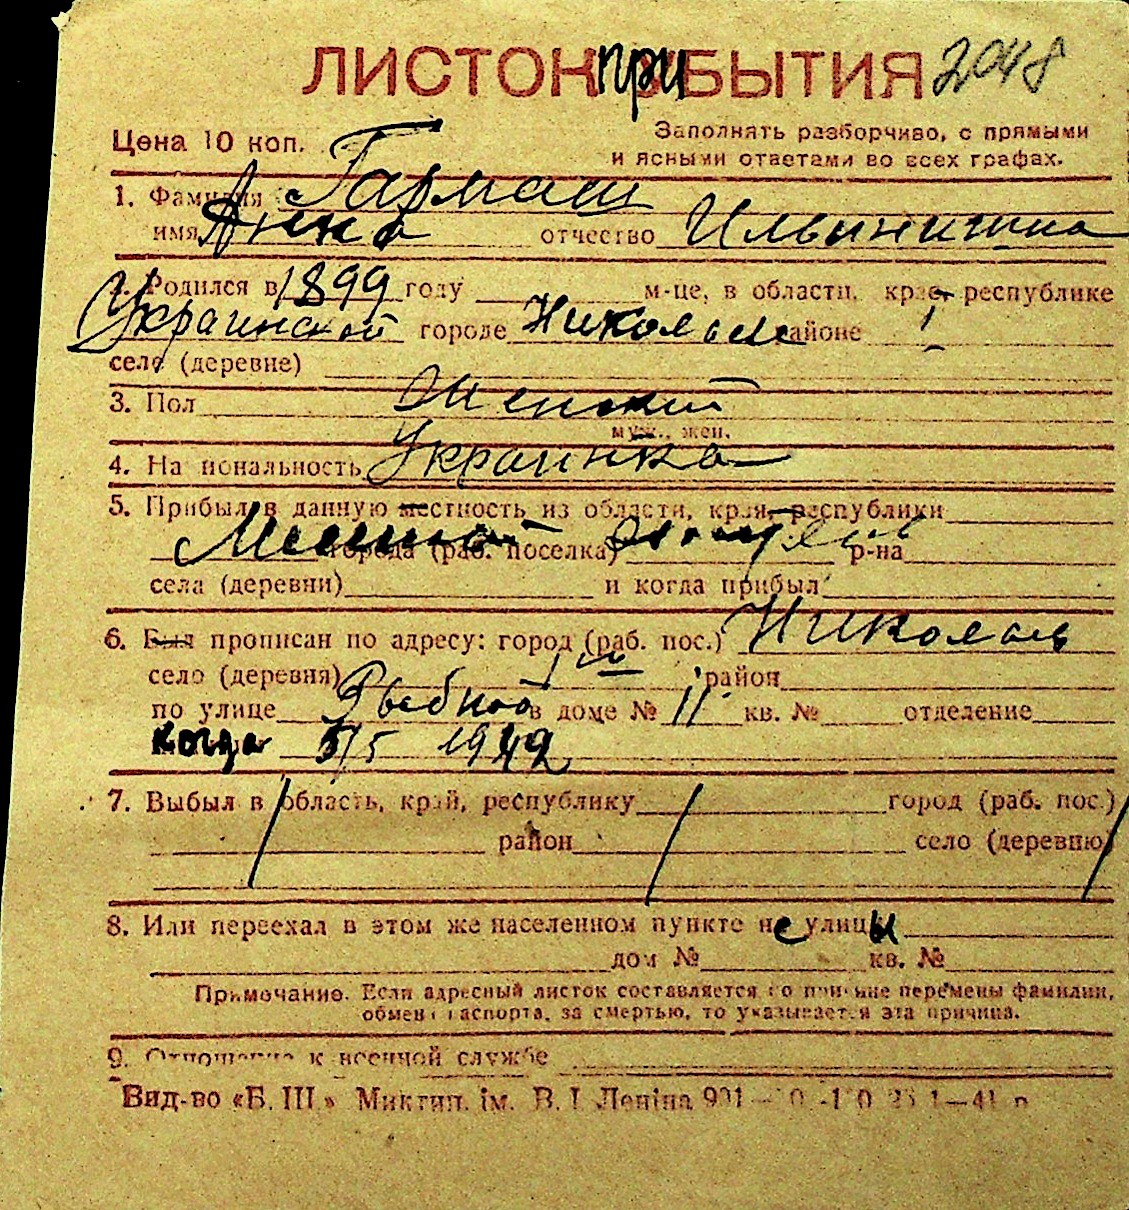 ЛИСТОК ПРИБЫТИЯ 2048
Цена 10 коп.
Заполнять разборчиво, с прямыми
и ясными ответами во всех графах.
1. Фамилия Гармаш
имя Анна отчество Ильинишна
2. Родился в 1899 году м-це, в области, крае, республике
Украинской городе Николаеве районе
село (деревне)
3. Пол Женский
муж., жен.
4. Национальность Украинка
5. Прибыл в данную местность из области, края, республики
города (раб. поселка) р-на
села (деревни) и когда прибыл
6. Был прописан по адресу: город (раб. пос.) Николаев
село (деревня) район
по улице Рыбной в доме № 11 кв. № отделение
когда 5/5 1942
7. Выбыл в область, край, республику город (раб. пос.)
район село (деревню)
8. Или переехал в этом же населенном пункте не улицы
дом № кв. №
Примечание. Если адресный листок составляется по причине перемены фамилии,
обмен паспорта, за смертью, то указывается эта причина.
9. Отношение к военной службе
Вид-во «Б. Ш.» Миктип. ім. В. І. Леніна